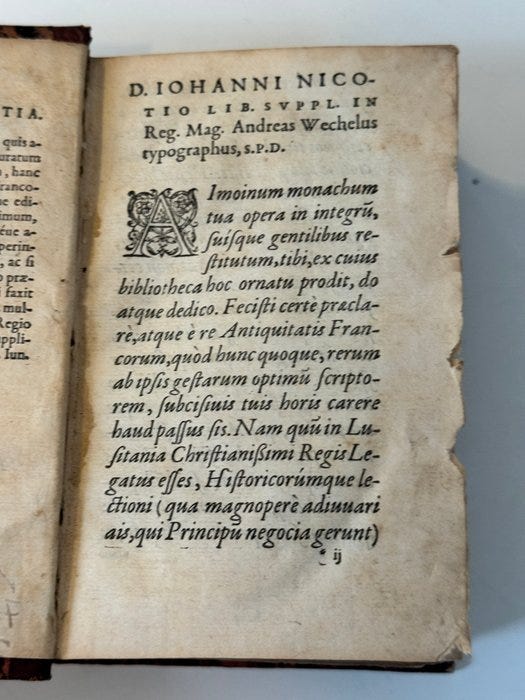 TIA.
quis a-
uratum
, hanc
ranco-
ue edi-
imum,
éue a-
perin-
, ac si
o præ-
i faxit
mul-
Regio
uppli-
Iun.
D. IOHANNI NICO-
TIO LIB. SVPPL. IN
Reg. Mag. Andreas Wechelus
typographus, S.P.D.
AImoinum monachum
tua opera in integrū,
suisque gentilibus re-
stitutum, tibi, ex cuius
bibliotheca hoc ornatu prodit, do
atque dedico. Fecisti certè præcla-
re, atque è re Antiquitatis Fran-
corum, quod hunc quoque, rerum
ab ipsis gestarum optimū scripto-
rem, subcisiuis tuis horis carere
haud passus sis. Nam quū in Lu-
sitania Christianißimi Regis Le-
gatus esses, Historicorúmque le-
ctioni (qua magnoperè adiuuari
ais, qui Principū negocia gerunt)
* ij